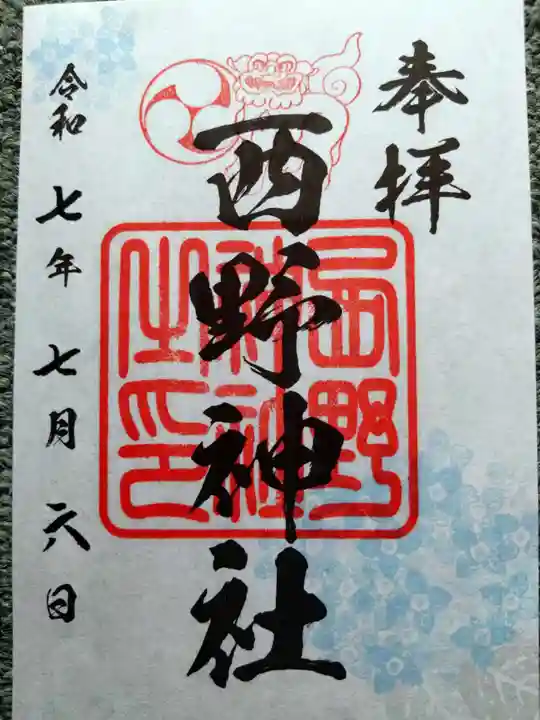 奉拝
西野神社
西野
神社
之印
令和 七年 七月 六日